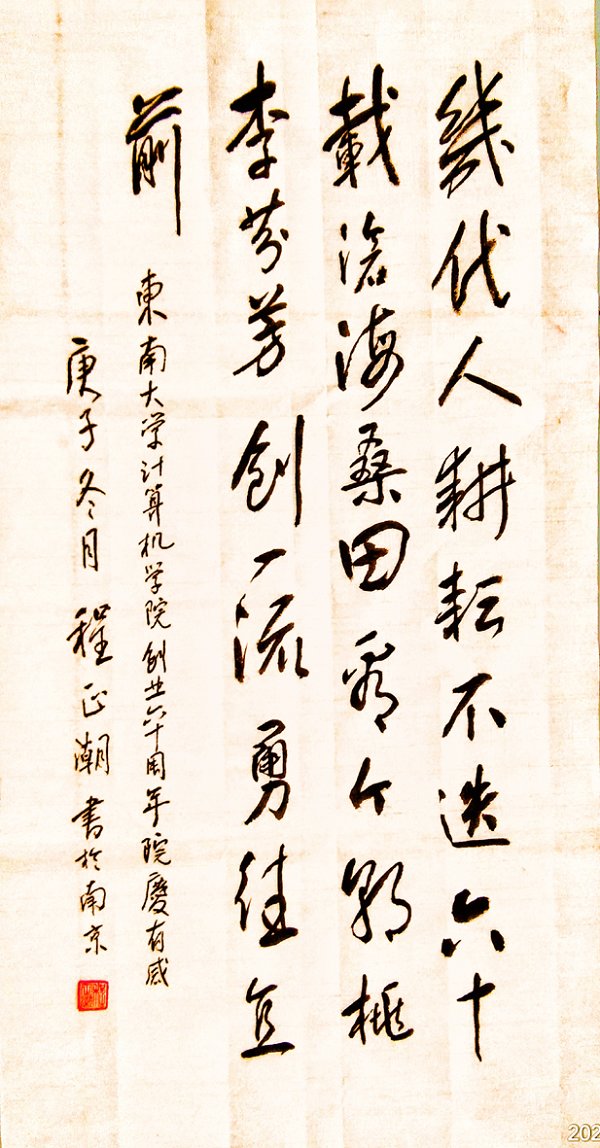 幾代人耕耘不迭六十
載滄海桑田看今朝桃
李芬芳创一流勇往直
前
東南大学计算机学院创业六十周年院慶有感
庚子冬月 程正潮書於南京
202